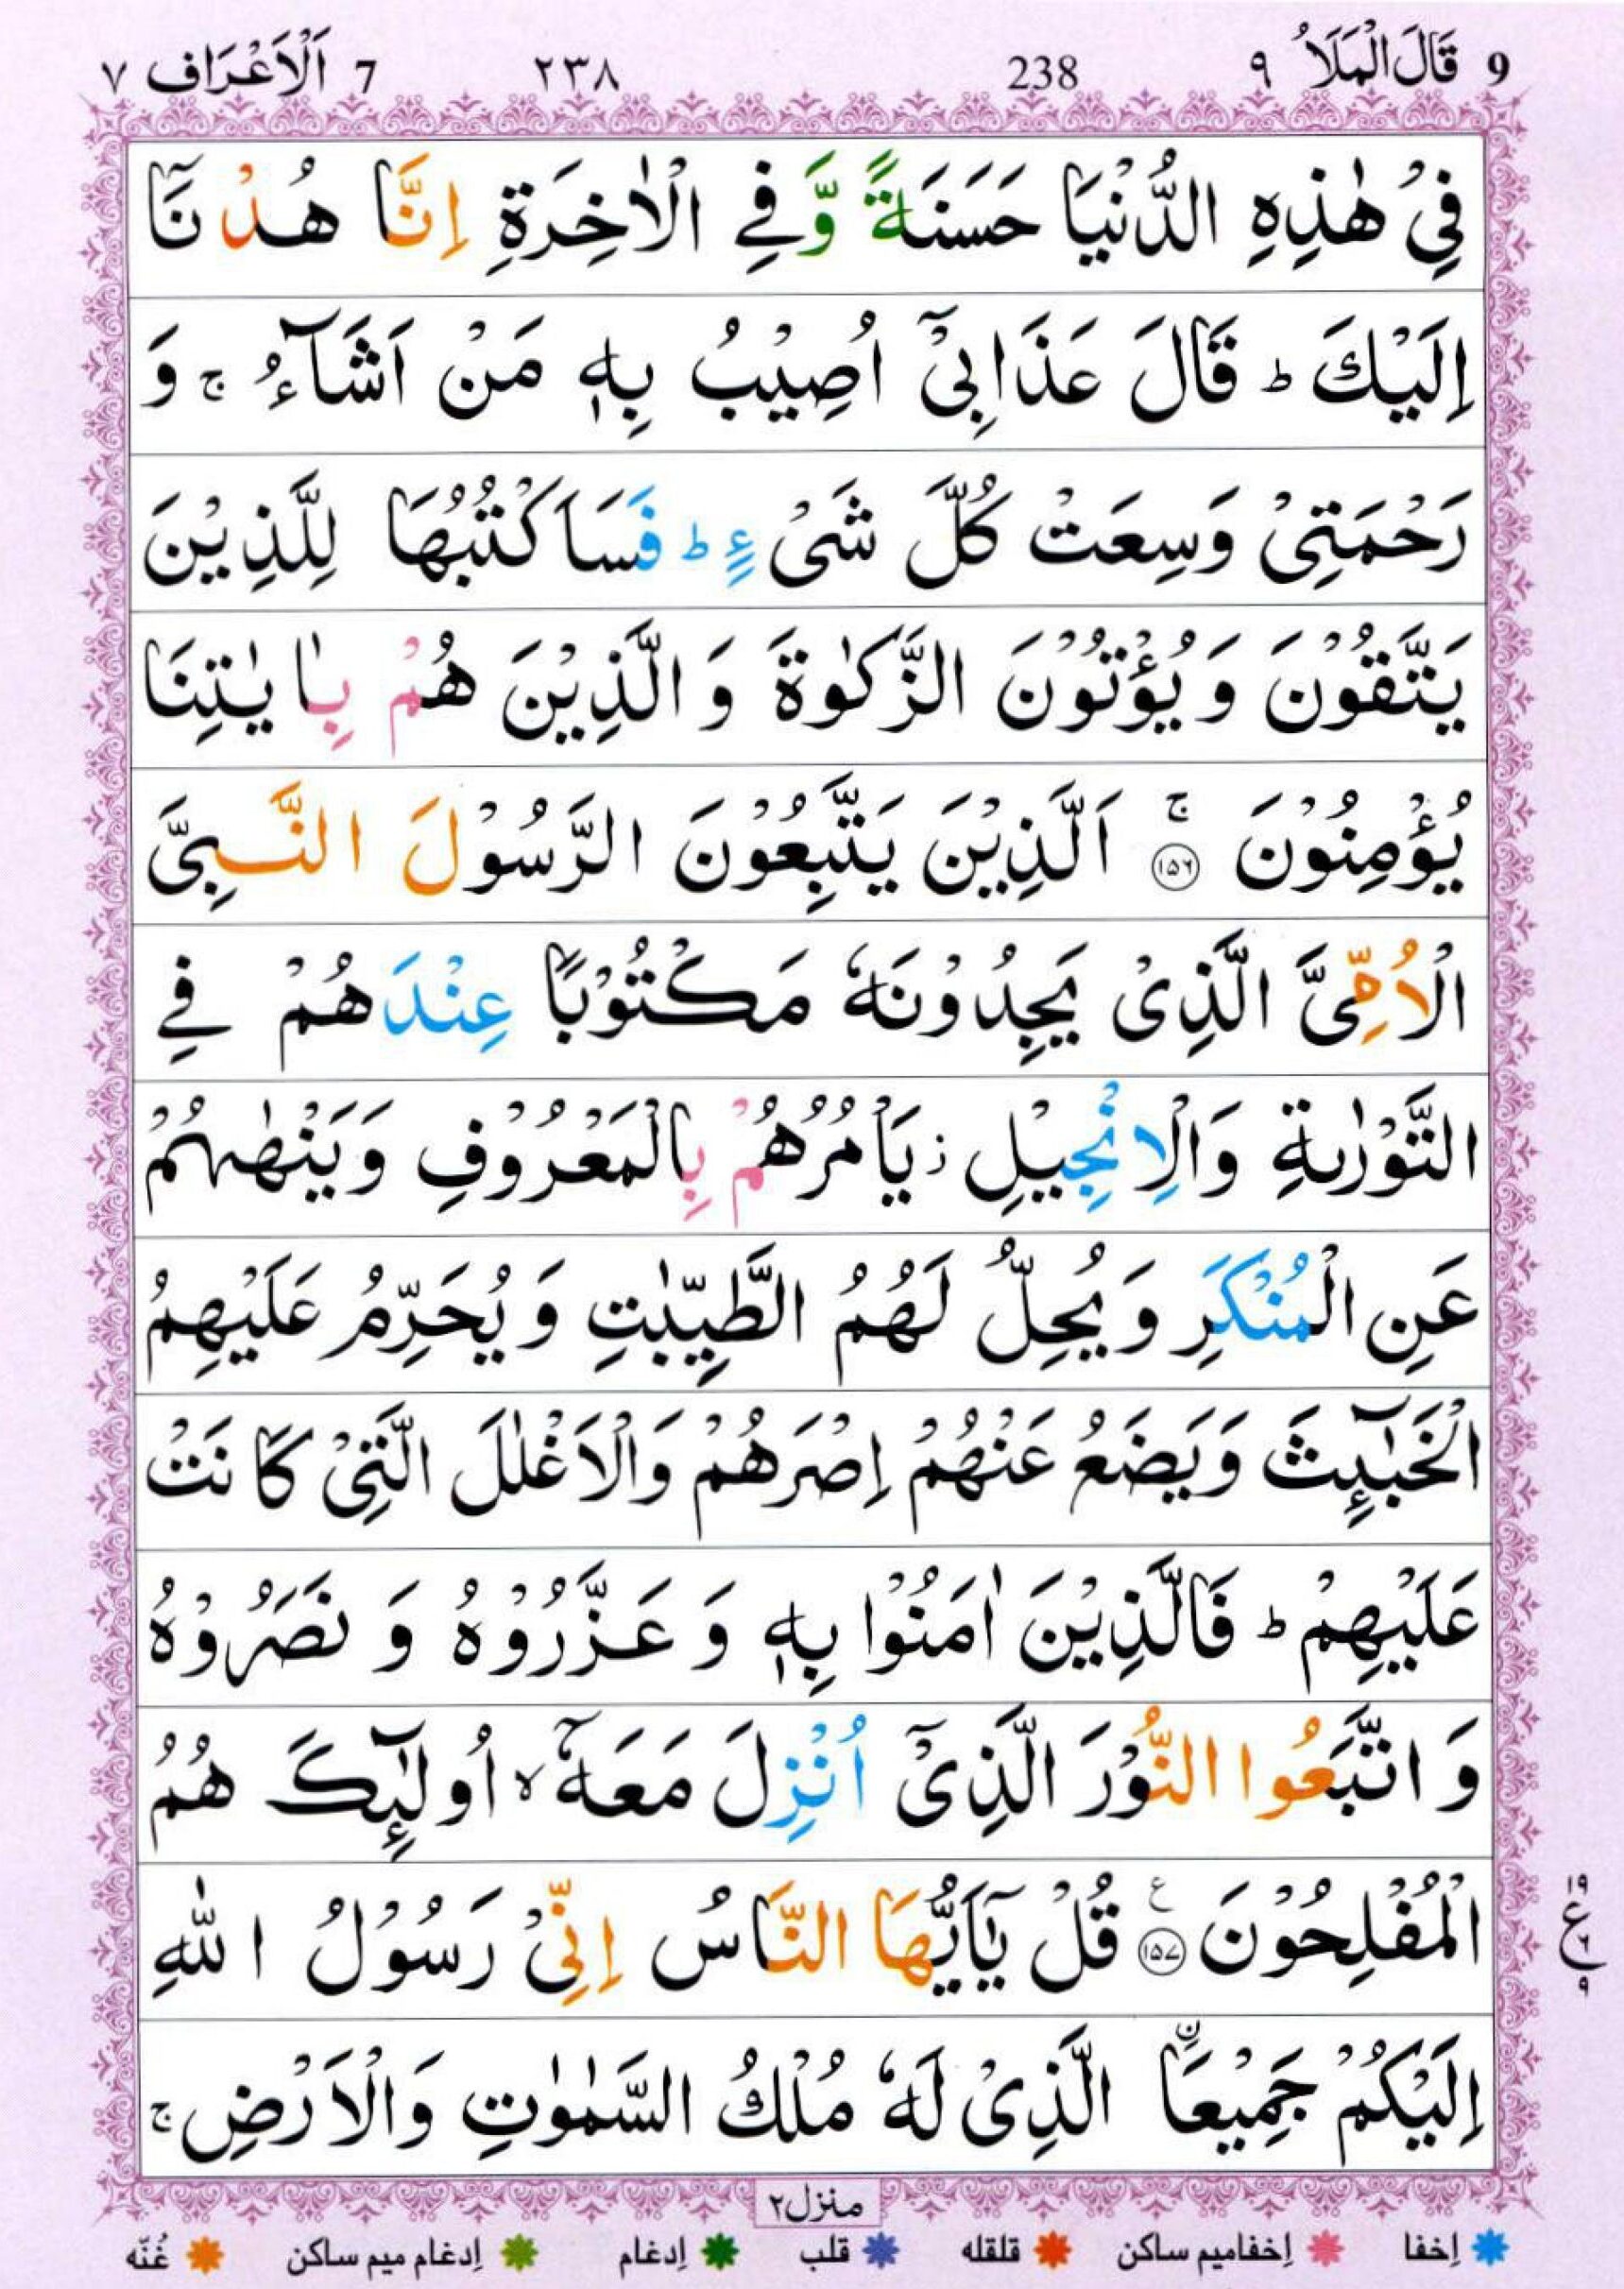 9 قَالَ الْمَلَاُ ٩ 238 ٢٣٨ 7 اَلْاَعْرَاف ٧
فِيْ هٰذِهِ الدُّنْيَا حَسَنَةً وَّفِي الْاٰخِرَةِ اِنَّا هُدْنَاۤ
اِلَيْكَ ؕ قَالَ عَذَابِيْۤ اُصِيْبُ بِهٖ مَنْ اَشَآءُ ۚ وَ
رَحْمَتِيْ وَسِعَتْ كُلَّ شَيْءٍ ؕ فَسَاَكْتُبُهَا لِلَّذِيْنَ
يَتَّقُوْنَ وَيُؤْتُوْنَ الزَّكٰوةَ وَالَّذِيْنَ هُمْ بِاٰيٰتِنَا
يُؤْمِنُوْنَ ۚ ﴿١٥٦﴾ اَلَّذِيْنَ يَتَّبِعُوْنَ الرَّسُوْلَ النَّبِيَّ
الْاُمِّيَّ الَّذِيْ يَجِدُوْنَهٗ مَكْتُوْبًا عِنْدَهُمْ فِي
التَّوْرٰىةِ وَالْاِنْجِيْلِ ؗ يَاْمُرُهُمْ بِالْمَعْرُوْفِ وَيَنْهٰىهُمْ
عَنِ الْمُنْكَرِ وَيُحِلُّ لَهُمُ الطَّيِّبٰتِ وَيُحَرِّمُ عَلَيْهِمُ
الْخَبٰٓئِثَ وَيَضَعُ عَنْهُمْ اِصْرَهُمْ وَالْاَغْلٰلَ الَّتِيْ كَانَتْ
عَلَيْهِمْ ؕ فَالَّذِيْنَ اٰمَنُوْا بِهٖ وَعَزَّرُوْهُ وَنَصَرُوْهُ
وَاتَّبَعُوا النُّوْرَ الَّذِيْۤ اُنْزِلَ مَعَهٗۤ ۙ اُولٰٓئِكَ هُمُ
الْمُفْلِحُوْنَ ﴿١٥٧﴾ ع قُلْ يٰۤاَيُّهَا النَّاسُ اِنِّيْ رَسُوْلُ اللّٰهِ
١٩ ع ٦ ٩
اِلَيْكُمْ جَمِيْعَاۨ الَّذِيْ لَهٗ مُلْكُ السَّمٰوٰتِ وَالْاَرْضِ ۚ
منزل ٢
اِخفا اِخفامیم ساکن قلقله قلب اِدغام اِدغام میم ساکن غُنّه